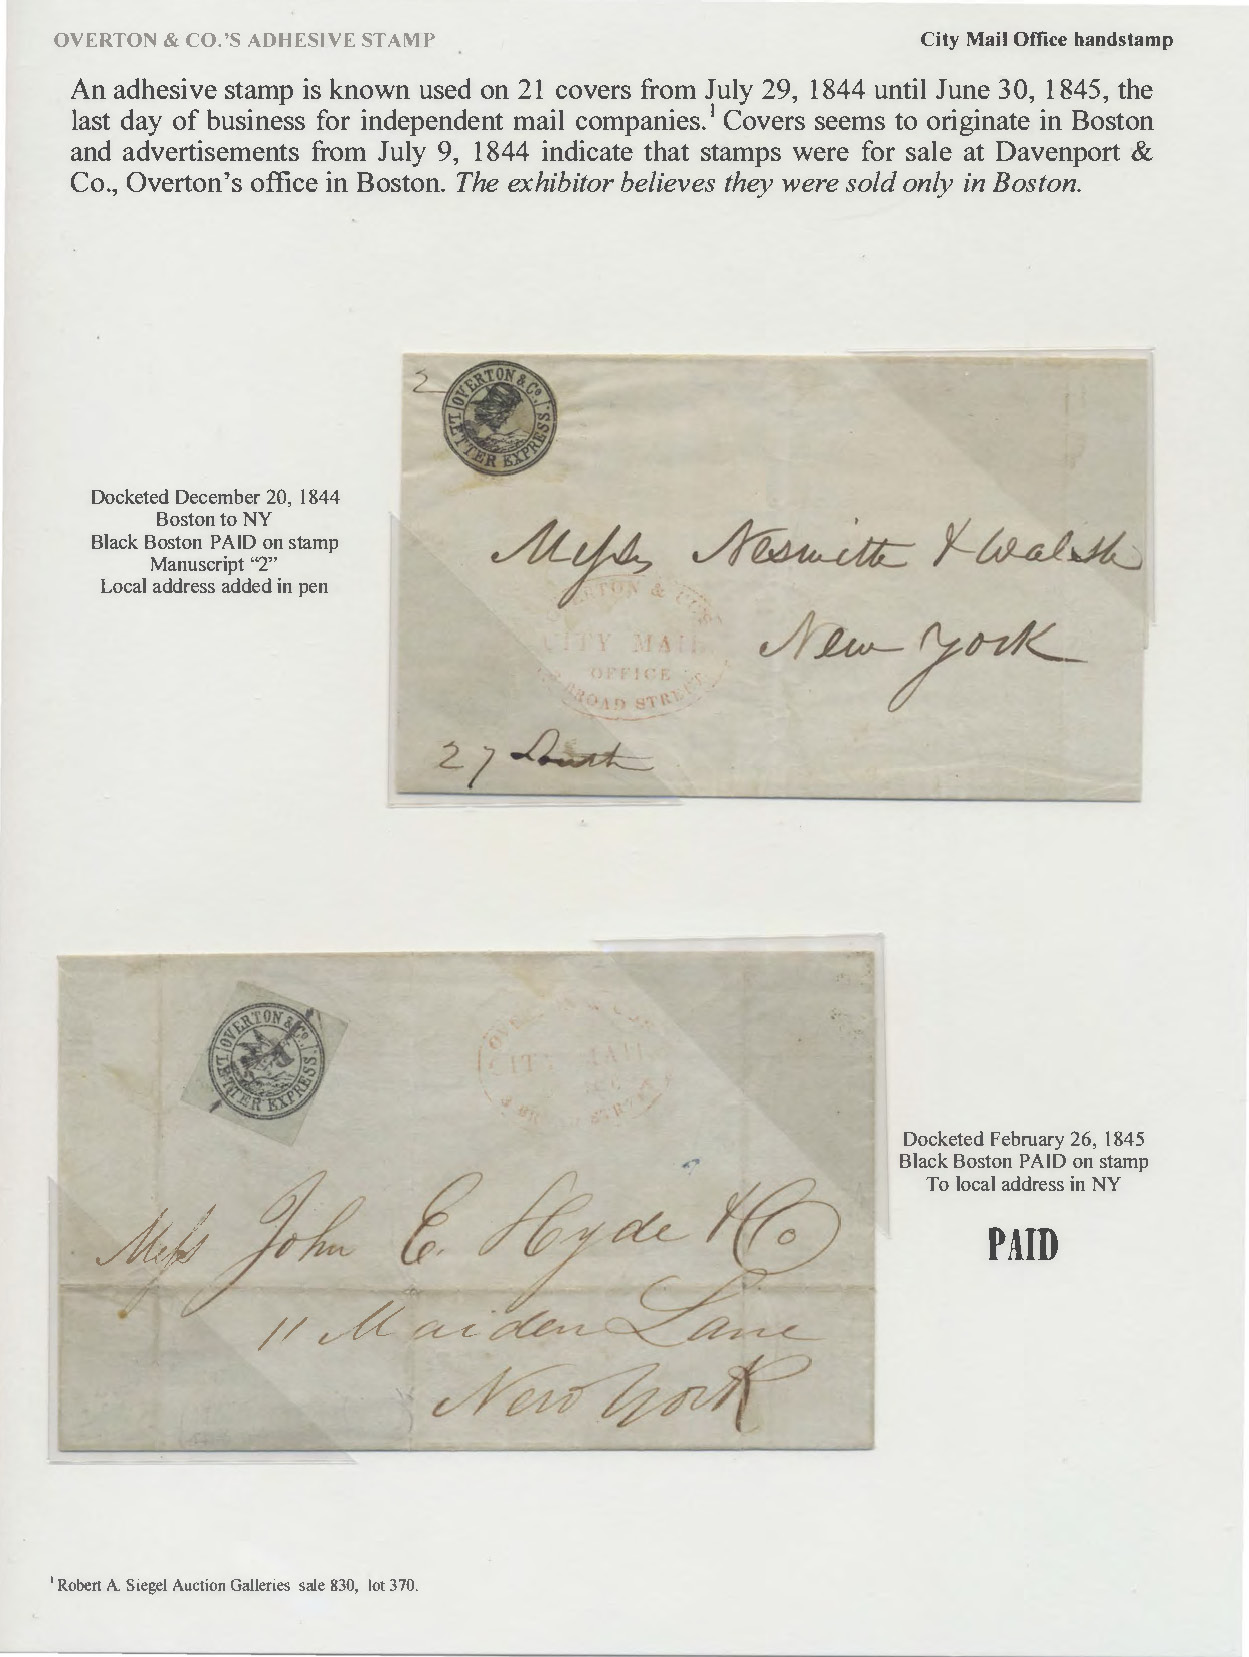 OVERTON & CO.'S ADHESIVE STAMP
City Mail Office handstamp
An adhesive stamp is known used on 21 covers from July 29, 1844 until June 30, 1845, the
last day of business for independent mail companies.¹ Covers seems to originate in Boston
and advertisements from July 9, 1844 indicate that stamps were for sale at Davenport &
Co., Overton's office in Boston. The exhibitor believes they were sold only in Boston.
2
OVERTON & Co.
LETTER EXPRESS.
Docketed December 20, 1844
Boston to NY
Black Boston PAID on stamp
Manuscript "2"
Local address added in pen
Messrs Nesmith & Walsh
New York
OVERTON & CO'S
CITY MAIL
OFFICE
BROAD STREET
27 South
OVERTON & Co.
LETTER EXPRESS.
CITY MAIL
Docketed February 26, 1845
Black Boston PAID on stamp
To local address in NY
PAID
Mess John E. Hyde & Co
11 Maiden Lane
New York
¹ Robert A. Siegel Auction Galleries sale 830, lot 370.